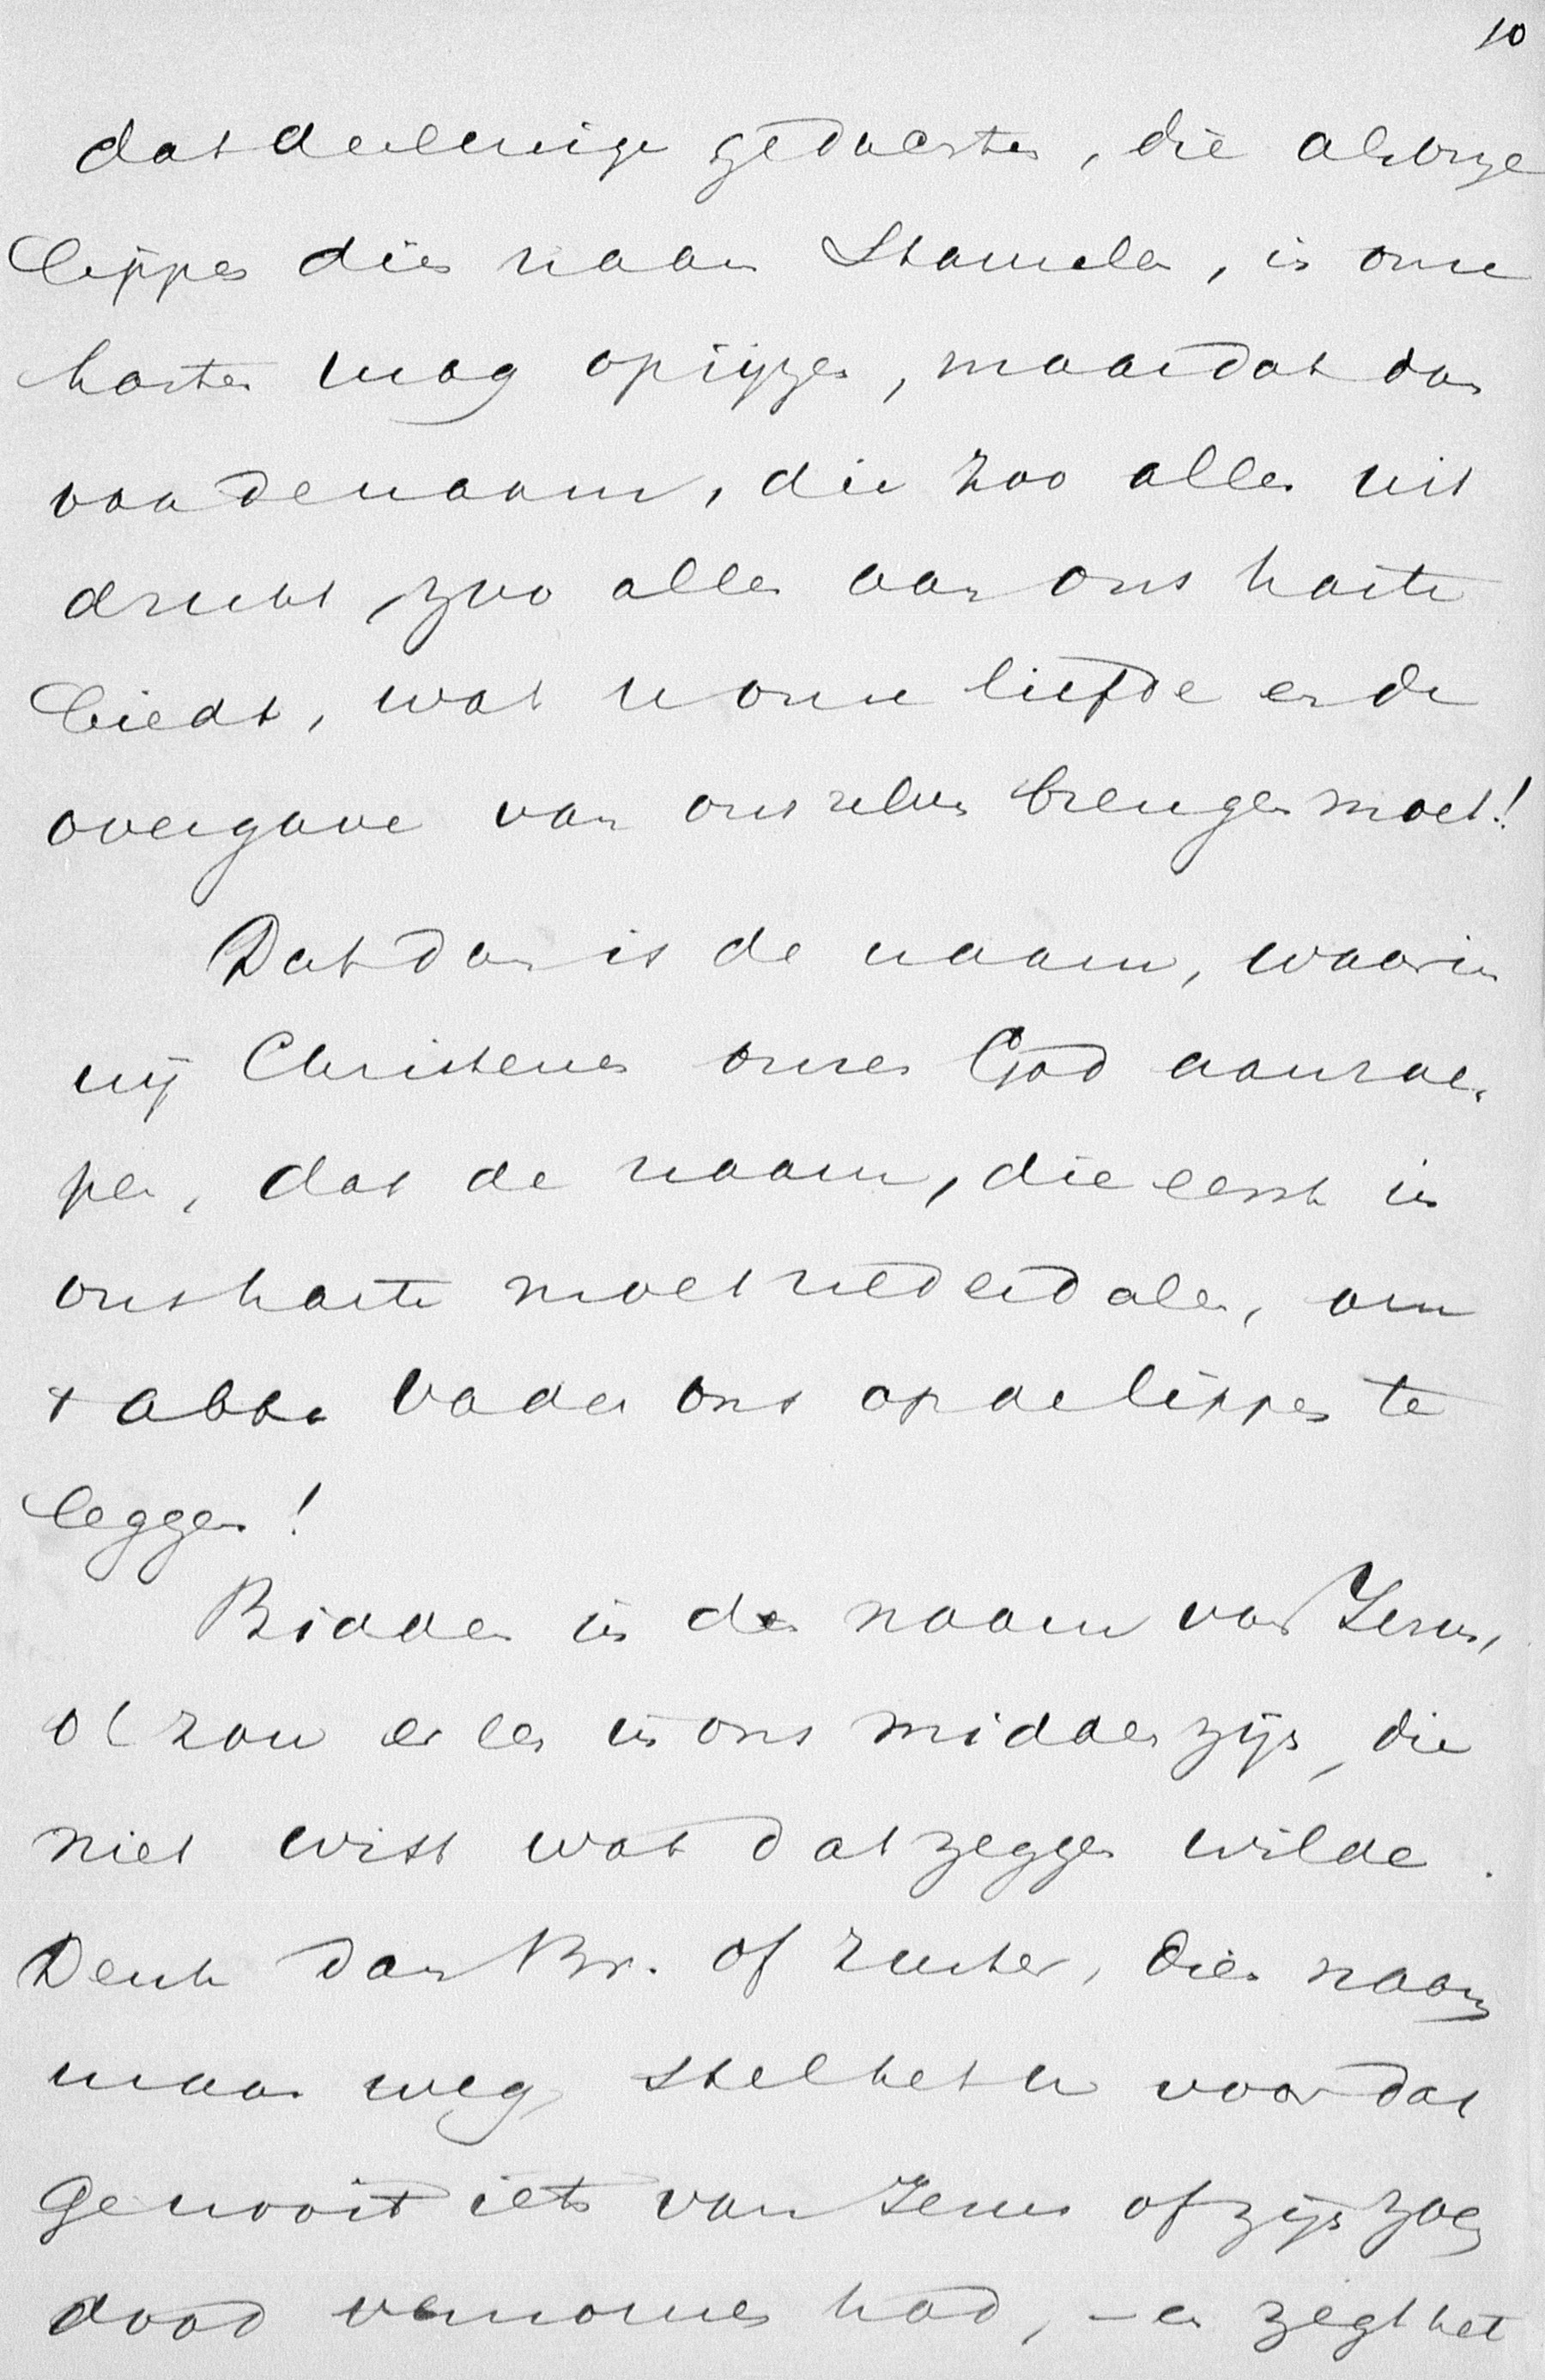 10
dat de eenige gedachte, die als onze
lippen dien naam stamelen, in onze
harten mag oprijzen, maar dat dan
van de naam, die zoo alles uit
drukt, zoo alles aan ons harte
biedt, wat u onze liefde en de
overgave van ons zelven brengen moet!
Dat dan is de naam, waarin
wij Christenen onzen God aanroe-
pen, dat de naam, die eerst in
ons harte moet nederdalen, om
't abba Vader ons op de lippen te
leggen!
Bidden in den naam van Jezus,
o! zou er een in ons midden zijn, die
niet wist wat dat zeggen wilde.
Denk dan Br. of Zuster, dien naam
maar weg, stel het u voor dat
ge nooit iets van Jezus of zijn zoen
dood vernomen had, – en zegt het